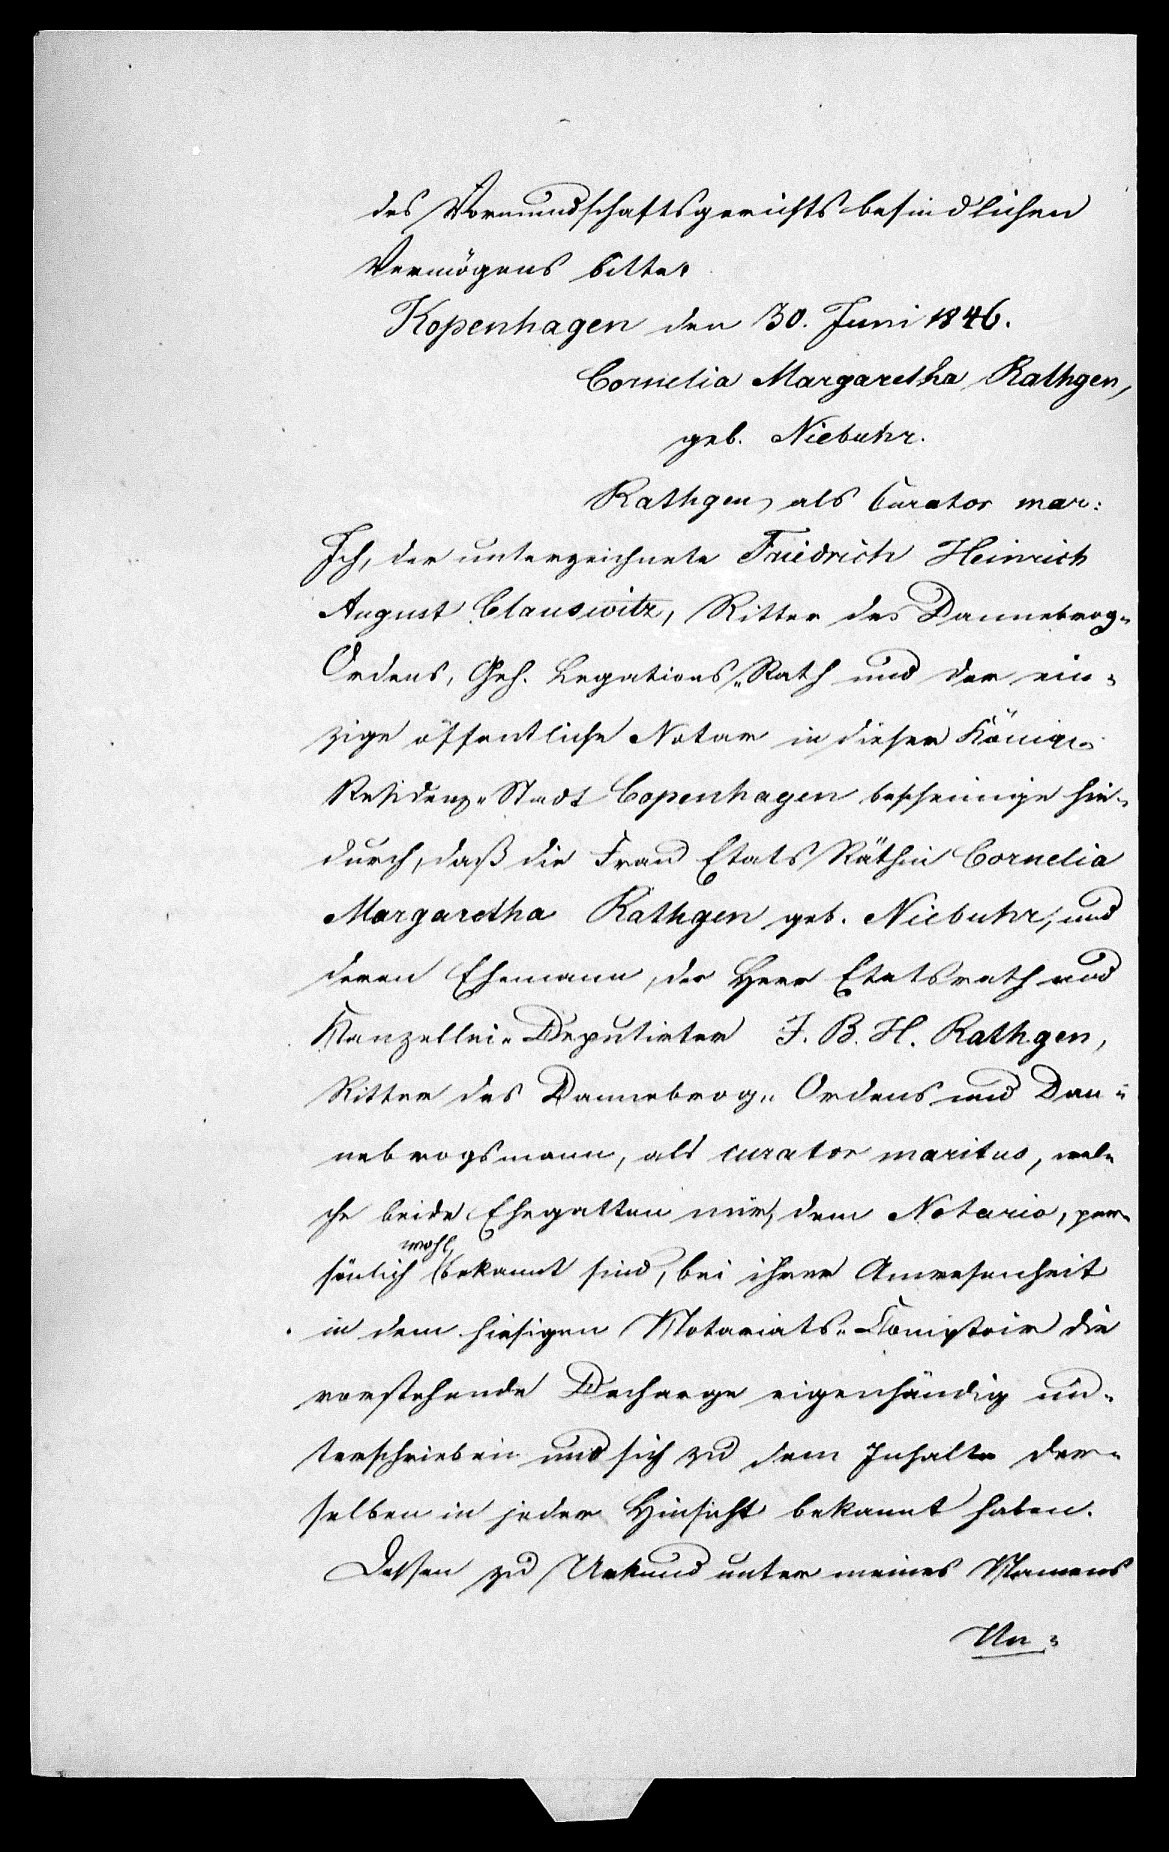 des Vormundschaftsgerichts befindlichen
Vermögens bitte.
Kopenhagen den 30. Juni 1846.
Cornelia Margaretha Rathgen,
geb. Niebuhr.
Rathgen, als Curator mar:
Ich, der unterzeichnete Friedrich Heinrich
August Clauswitz, Ritter des Dannebrog-
Ordens, Geh. Legations-Rath und der ein-
zige öffentliche Notar in dieser Königl.
Residenz-Stadt Copenhagen bescheinige hie-
durch, daß die Frau Etats Räthin Cornelia
Margaretha Rathgen geb. Niebuhr, und
deren Ehemann, der Herr Etatsrath und
Kanzellei-Deputirter J. B. H. Rathgen,
Ritter des Dannebrog-Ordens und Dan-
nebrogsmann, als curator maritus, wel-
che beide Ehegatten mir, dem Notario, per-
wohl
sönlich bekannt sind, bei ihrer Anwesenheit
in dem hiesigen Notariats-Comptoir die
vorstehende Decharge eigenhändig un-
terschrieben und sich zu dem Inhalte der-
selben in jeder Hinsicht bekannt haben.
Dessen zu Urkund unter meines Namens
Un-